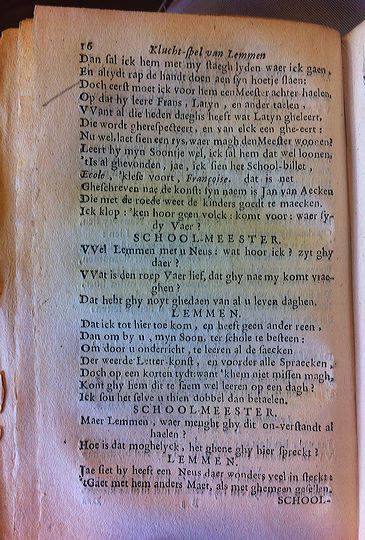 16 Klucht-spel van Lemmen
Dan sal ick hem met my staegh lyden waer ick gaen,
En altydt rap de handt doen aen syn hoetje slaen:
Doch eerst moet ick voor hem een Meester achter haelen,
Op dat hy leere Frans, Latyn, en ander taelen,
VVant al die heden daeghs heeft wat Latyn gheleert,
Die wordt gherespecteert, en van elck een ghe-eert:
Nu wel, laet sien eens rys, waer magh den Meester woonen?
Leert hy myn Soontje wel, ick sal hem dat wel loonen,
'tIs al ghevonden, jae, ick sien het School-billet,
Ecole, 'klese voort, Françoise. dat is net
Gheschreven nae de konst: syn naem is Jan van Aecken
Die met de roede weet de kinders goedt te maecken.
Ick klop: 'ken hoor geen volck: komt voor: waer sy-
dy Vaer?
SCHOOL-MEESTER.
VVel Lemmen met u Neus: wat hoor ick? zyt ghy
daer?
VVat is den roep Vaer lief, dat ghy nae my komt vrae-
ghen?
Dat hebt ghy noyt ghedaen van al u leven daghen.
LEMMEN.
Dat ick tot hier toe kom, en heeft geen ander reen,
Dan om by u, myn Soon, ter schole te besteen:
Om door u onderricht, te leeren al de saecken
Der weerde Letter-konst, en voorder alle Spraecken,
Doch op een korten tydt: want 'k hem niet missen magh,
Kont ghy hem dit te saem wel leeren op een dagh?
Ick sou het selve u thien dobbel dan betaelen.
SCHOOL-MEESTER.
Maer Lemmen, waer meught ghy dit on-verstandt al
haelen?
Hoe is dat moghelyck, het ghene ghy hier spreckt?
LEMMEN.
Jae siet hy heeft een Neus daer wonders veel in steckt:
'tGaet met hem anders Maet, als met ghemeen gesellen.
SCHOOL-